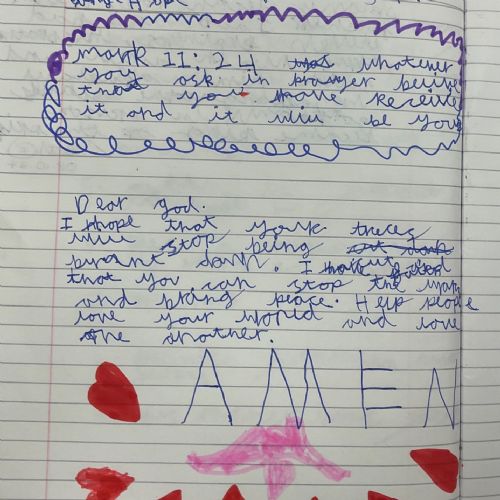 mark 11:24 whatever
you ask in prayer belive
that you have receive
it and it will be yours
Dear god.
I hope that your trees
will stop being cut down
burnt down. I
that you can stop the war
and bring peace. Help people
love your world and love
one another.
AMEN